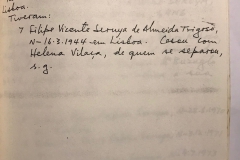 Lisboa.
Tiveram:
7 Filipe Vicente Seruya de Almeida Trigoso,
N-16.3.1944 em Lisboa. Casou com
Helena Vilaça, de quem se separou,
s.g.